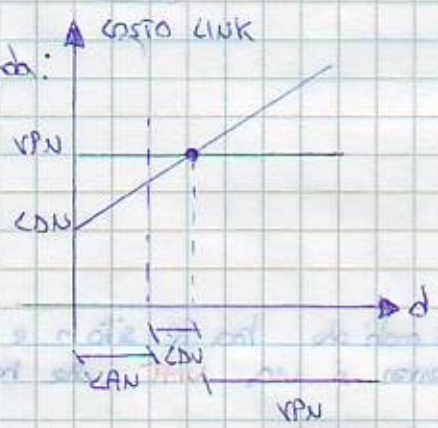 COSTO LINK
da:
VPN
CDN
d
CDN
LAN
VPN